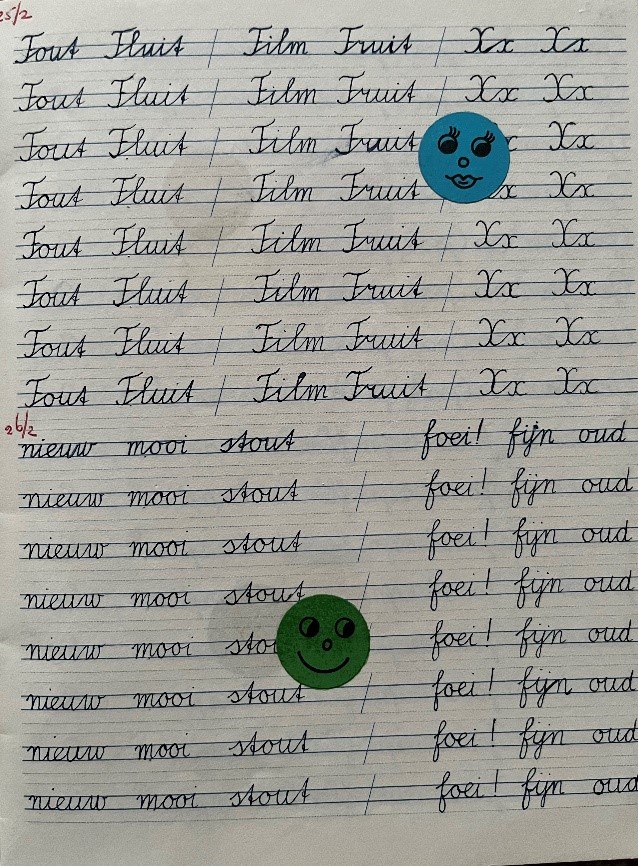 25/2
Fout Fluit / Film Fruit / Xx Xx
Fout Fluit / Film Fruit / Xx Xx
Fout Fluit / Film Fruit Xx
Fout Fluit / Film Fruit / x Xx
Fout Fluit / Film Fruit / Xx Xx
Fout Fluit / Film Fruit / Xx Xx
Fout Fluit / Film Fruit / Xx Xx
Fout Fluit / Film Fruit / Xx Xx
26/2
nieuw mooi stout / foei! fijn oud
nieuw mooi stout / foei! fijn oud
nieuw mooi stout / foei! fijn oud
nieuw mooi stout / foei! fijn oud
nieuw mooi / foei! fijn oud
nieuw mooi stout / foei! fijn oud
nieuw mooi stout / foei! fijn oud
nieuw mooi stout / foei! fijn oud